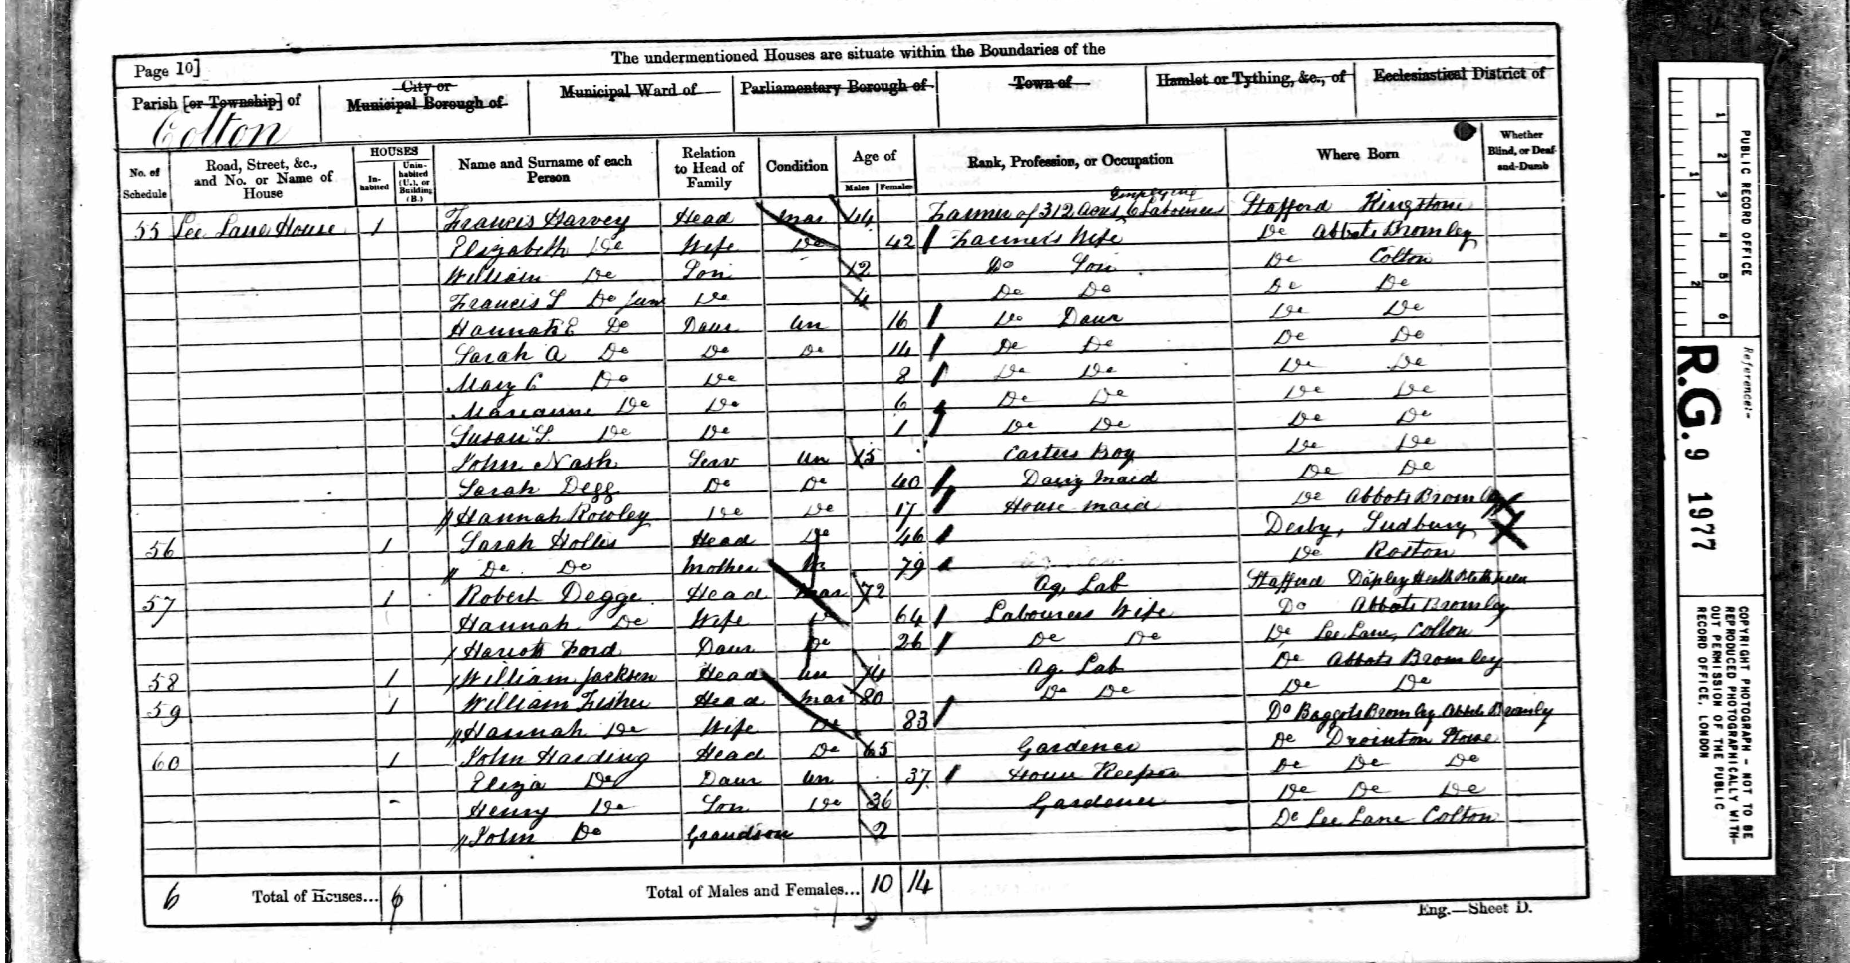 The undermentioned Houses are situate within the Boundaries of the
Page 10]
Parish [or Township] of
Colton
City or
Municipal Borough of
Municipal Ward of
Parliamentary Borough of
Town of
Hamlet or Tything, &c., of
Ecclesiastical District of
No. of
Schedule
Road, Street, &c.,
and No. or Name of
House
HOUSES
In-
habited
Unin-
habited
(U.), or
Building
(B.)
Name and Surname of each
Person
Relation
to Head of
Family
Condition
Age of
Males
Females
Rank, Profession, or Occupation
Where Born
Whether
Blind, or Deaf-
and-Dumb
employing
55 Lee Lane House 1 Francis Harvey Head Mar 44 Farmer of 312 Acres 6 Labourers Stafford Kingstone
Elizabeth Do Wife Do 42 Farmer's Wife Do Abbots Bromley
William Do Son 12 Do Son Do Colton
Francis L Do Jun Do 4 Do Do Do Do
Hannah E Do Daur Un 16 Do Daur Do Do
Sarah A Do Do Do 14 Do Do Do Do
Mary C Do Do 8 Do Do Do Do
Marianne Do Do 6 Do Do Do Do
Susan S. Do Do 1 Do Do Do Do
John Nash Serv Un 15 Carters Boy Do Do
Sarah Degg Do Do 40 Dairy Maid Do Do
Hannah Rowley Do Do 17 House Maid Do Abbots Bromley
56 1 Sarah Hollis Head Do 46 Derby, Sudbury
Do Do Mother 79 Do Roston
57 1 Robert Degge Head Mar 72 Ag. Lab Stafford
Hannah Do Wife Do 64 Labourers Wife Do Abbots Bromley
Hariott Ford Daur Do 26 Do Do Do Lee Lane, Colton
58 1 William Jackson Head Un 74 Ag. Lab Do Abbots Bromley
59 1 William Fisher Head Mar 80 Do Do Do Do
Hannah Do Wife Do 83 Do Baggots Bromley Abbots Bromley
60 1 John Harding Head Do 65 Gardener Do Drointon Stowe
Eliza Do Daur Un 37 House Keeper Do Do Do
- Henry Do Son Do 36 Gardener Do Do Do
John Do Grandson 2 Do Lee Lane Colton
6 Total of Houses... 6 Total of Males and Females... 10 14
Eng.—Sheet D.
PUBLIC RECORD OFFICE
1 2 3 4 5 6
1 2
Reference:-
R.G. 9 1977
COPYRIGHT PHOTOGRAPH - NOT TO BE
REPRODUCED PHOTOGRAPHICALLY WITH-
OUT PERMISSION OF THE PUBLIC
RECORD OFFICE, LONDON